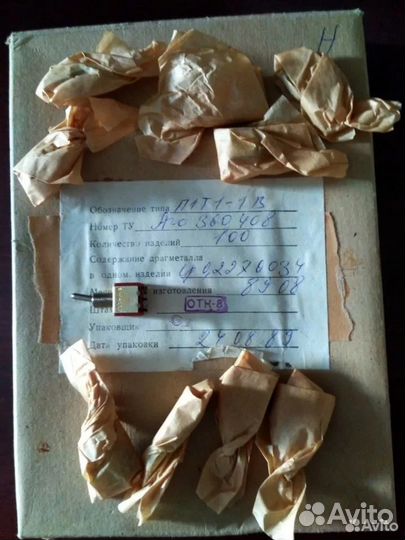 Н
Обозначение типа П1Т1-1В
Номер ТУ Аго 360 408
Количество изделий 100
Содержание драгметалла
в одном изделии
изготовления 89 08
ОТК-8
Упаковщик
Дата упаковки 24 08 89
Avito
Avito